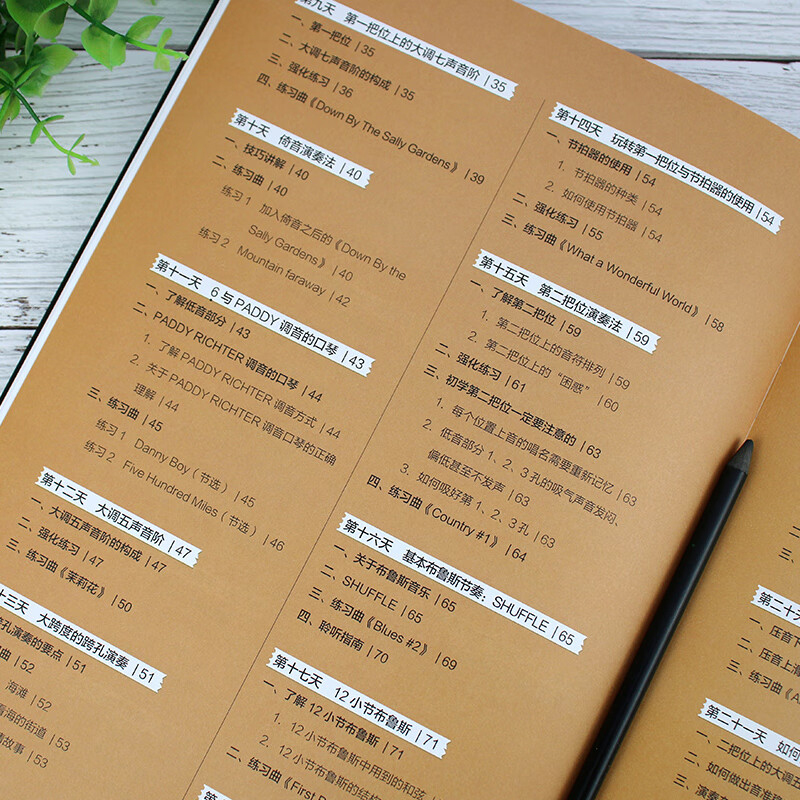 第九天 第一把位上的大调七声音阶 | 35
一、第一把位 | 35
二、大调七声音阶的构成 | 35
三、强化练习 | 36
四、练习曲《Down By The Sally Gardens》 | 39
第十天 倚音演奏法 | 40
一、技巧讲解 | 40
二、练习曲 | 40
练习 1 加入倚音之后的《Down By the
Sally Gardens》 | 40
练习 2 Mountain faraway | 42
第十一天 6 与 PADDY 调音的口琴 | 43
一、了解低音部分 | 43
二、PADDY RICHTER 调音的口琴 | 44
1. 了解 PADDY RICHTER 调音方式 | 44
2. 关于 PADDY RICHTER 调音口琴的正确
理解 | 44
三、练习曲 | 45
练习 1 Danny Boy（节选） | 45
练习 2 Five Hundred Miles（节选） | 46
第十二天 大调五声音阶 | 47
一、大调五声音阶的构成 | 47
二、强化练习 | 47
三、练习曲《茉莉花》 | 50
十三天 大跨度的跨孔演奏 | 51
孔演奏的要点 | 51
曲 | 52
海滩 | 52
看海的街道 | 53
情故事 | 53
第十四天 玩转第一把位与节拍器的使用 | 54
一、节拍器的使用 | 54
1. 节拍器的种类 | 54
2. 如何使用节拍器 | 54
二、强化练习 | 55
三、练习曲《What a Wonderful World》 | 58
第十五天 第二把位演奏法 | 59
一、了解第二把位 | 59
1. 第二把位上的音符排列 | 59
2. 第二把位上的“困惑” | 60
二、强化练习 | 61
三、初学第二把位一定要注意的 | 63
1. 每个位置上音的唱名需要重新记忆 | 63
2. 低音部分 1、2、3 孔的吸气声音发闷、
偏低甚至不发声 | 63
3. 如何吸好第 1、2、3 孔 | 63
四、练习曲《Country #1》 | 64
第十六天 基本布鲁斯节奏：SHUFFLE | 65
一、关于布鲁斯音乐 | 65
二、SHUFFLE | 65
三、练习曲《Blues #2》 | 69
四、聆听指南 | 70
第十七天 12 小节布鲁斯 | 71
一、了解 12 小节布鲁斯 | 71
1. 12 小节布鲁斯中用到的和弦
2. 12 小节布鲁斯的结构
二、练习曲《First
第
二
三、
第二十天
一、压音下
二、压音上滑
三、练习曲《A
第二十一天 如何
一、二把位上的大调五
二、如何做出音准
三、演奏